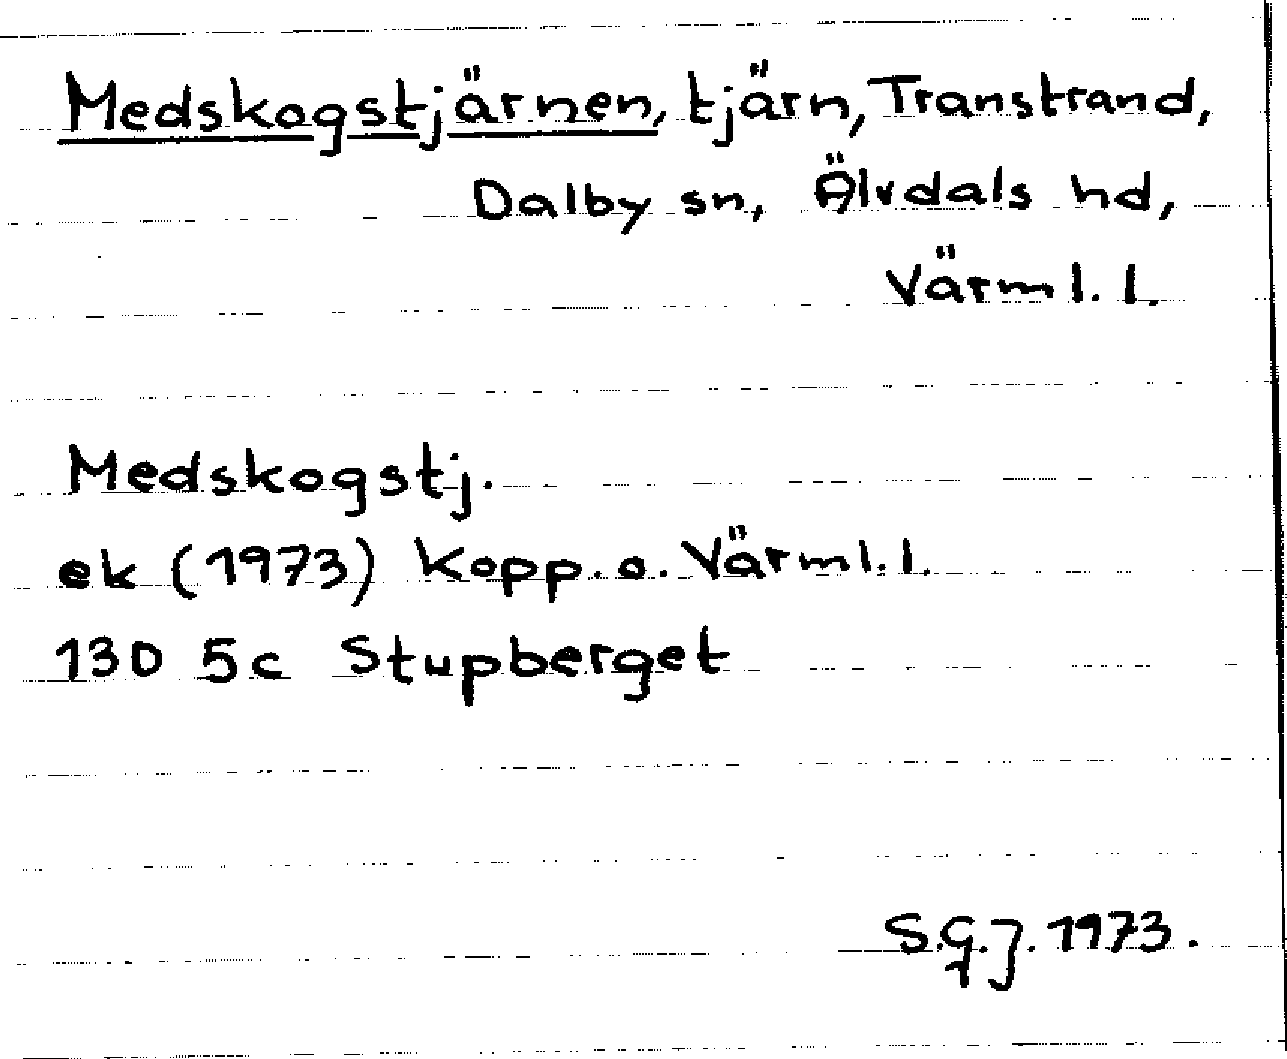 Medskogstjärnen, tjärn, Transtrand,
Dalby sn, Älvdals hd,
Värml. l.
Medskogstj.
ek (1973) Kopp. o. Värml. l.
13D 5c Stupberget
S.G.J. 1973.